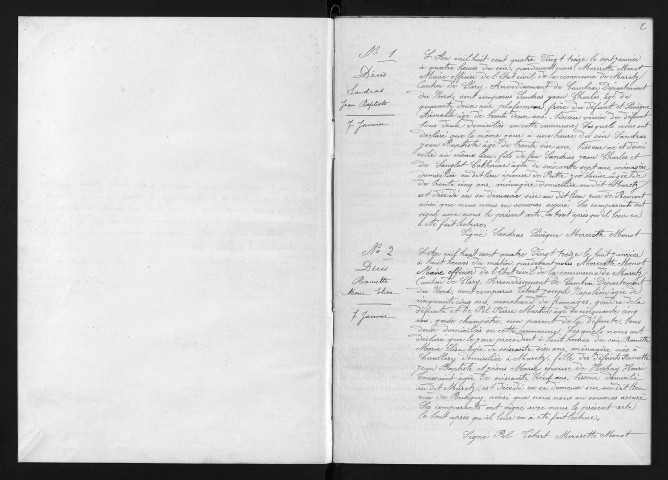 2
No 1
Décès
Landras
Jean Baptiste
7 Janvier
L'An mil huit cent quatre Vingt treize le sept janvier
à quatre heures du soir, pardevant nous Morcrette Monot
Maire officier de l'Etat civil de la commune de Maretz
Canton de Clary, Arrondissement de Cambrai Département
du Nord, sont comparus Landras Jean Charles âgé de
quarante deux ans, frère du défunt et Lévêque
âgé de trente deux ans, tisseur voisin du défunt
tous deux domiciliés en cette commune, lesquels nous ont
déclaré que le même jour à une heure du soir Landras
Jean Baptiste âgé de trente six ans, tisseur né et domi
cilié au même lieu, fils de feu Landras Jean Charles et
de Catherine âgée de soixante sept ans, ménagère
domiciliée audit lieu, époux de âgée
de trente cinq ans, ménagère domiciliée audit Maretz
est décédé en sa demeure sise audit lieu rue de
ainsi que nous nous en sommes assuré. Les comparants ont
signé avec nous le présent acte, le tout après qu'il leur en
a été fait lecture.
Signé Landras Lévêque Morcrette Monot
No 2
Décès
Ramette
Marie Elisa
7 Janvier
L'An mil huit cent quatre Vingt treize le huit janvier
à huit heures du matin, pardevant nous Morcrette Monot
Maire officier de l'Etat civil de la commune de Maretz
Canton de Clary, Arrondissement de Cambrai Département
du Nord, sont comparus Joseph Napoléon âgé de
cinquante cinq ans, marchand de fromages, gendre de la
défunte et Pierre Martin âgé de cinquante cinq
ans, garde champêtre, non parent de la défunte, tous
deux domiciliés en cette commune, lesquels nous ont
déclaré que le jour précédent à huit heures du soir Ramette
Marie Elisa âgée de soixante six ans, ménagère née à
domiciliée à Maretz, fille des défunts Ramette
Jean Baptiste et Marie, épouse de Henri
Toussaint âgé de soixante neuf ans, tisseur domicilié
audit Maretz, est décédée en sa demeure sise audit lieu
rue de ainsi que nous nous en sommes assuré
Les comparants ont signé avec nous le présent acte
le tout après qu'il leur en a été fait lecture.
Signé Morcrette Monot